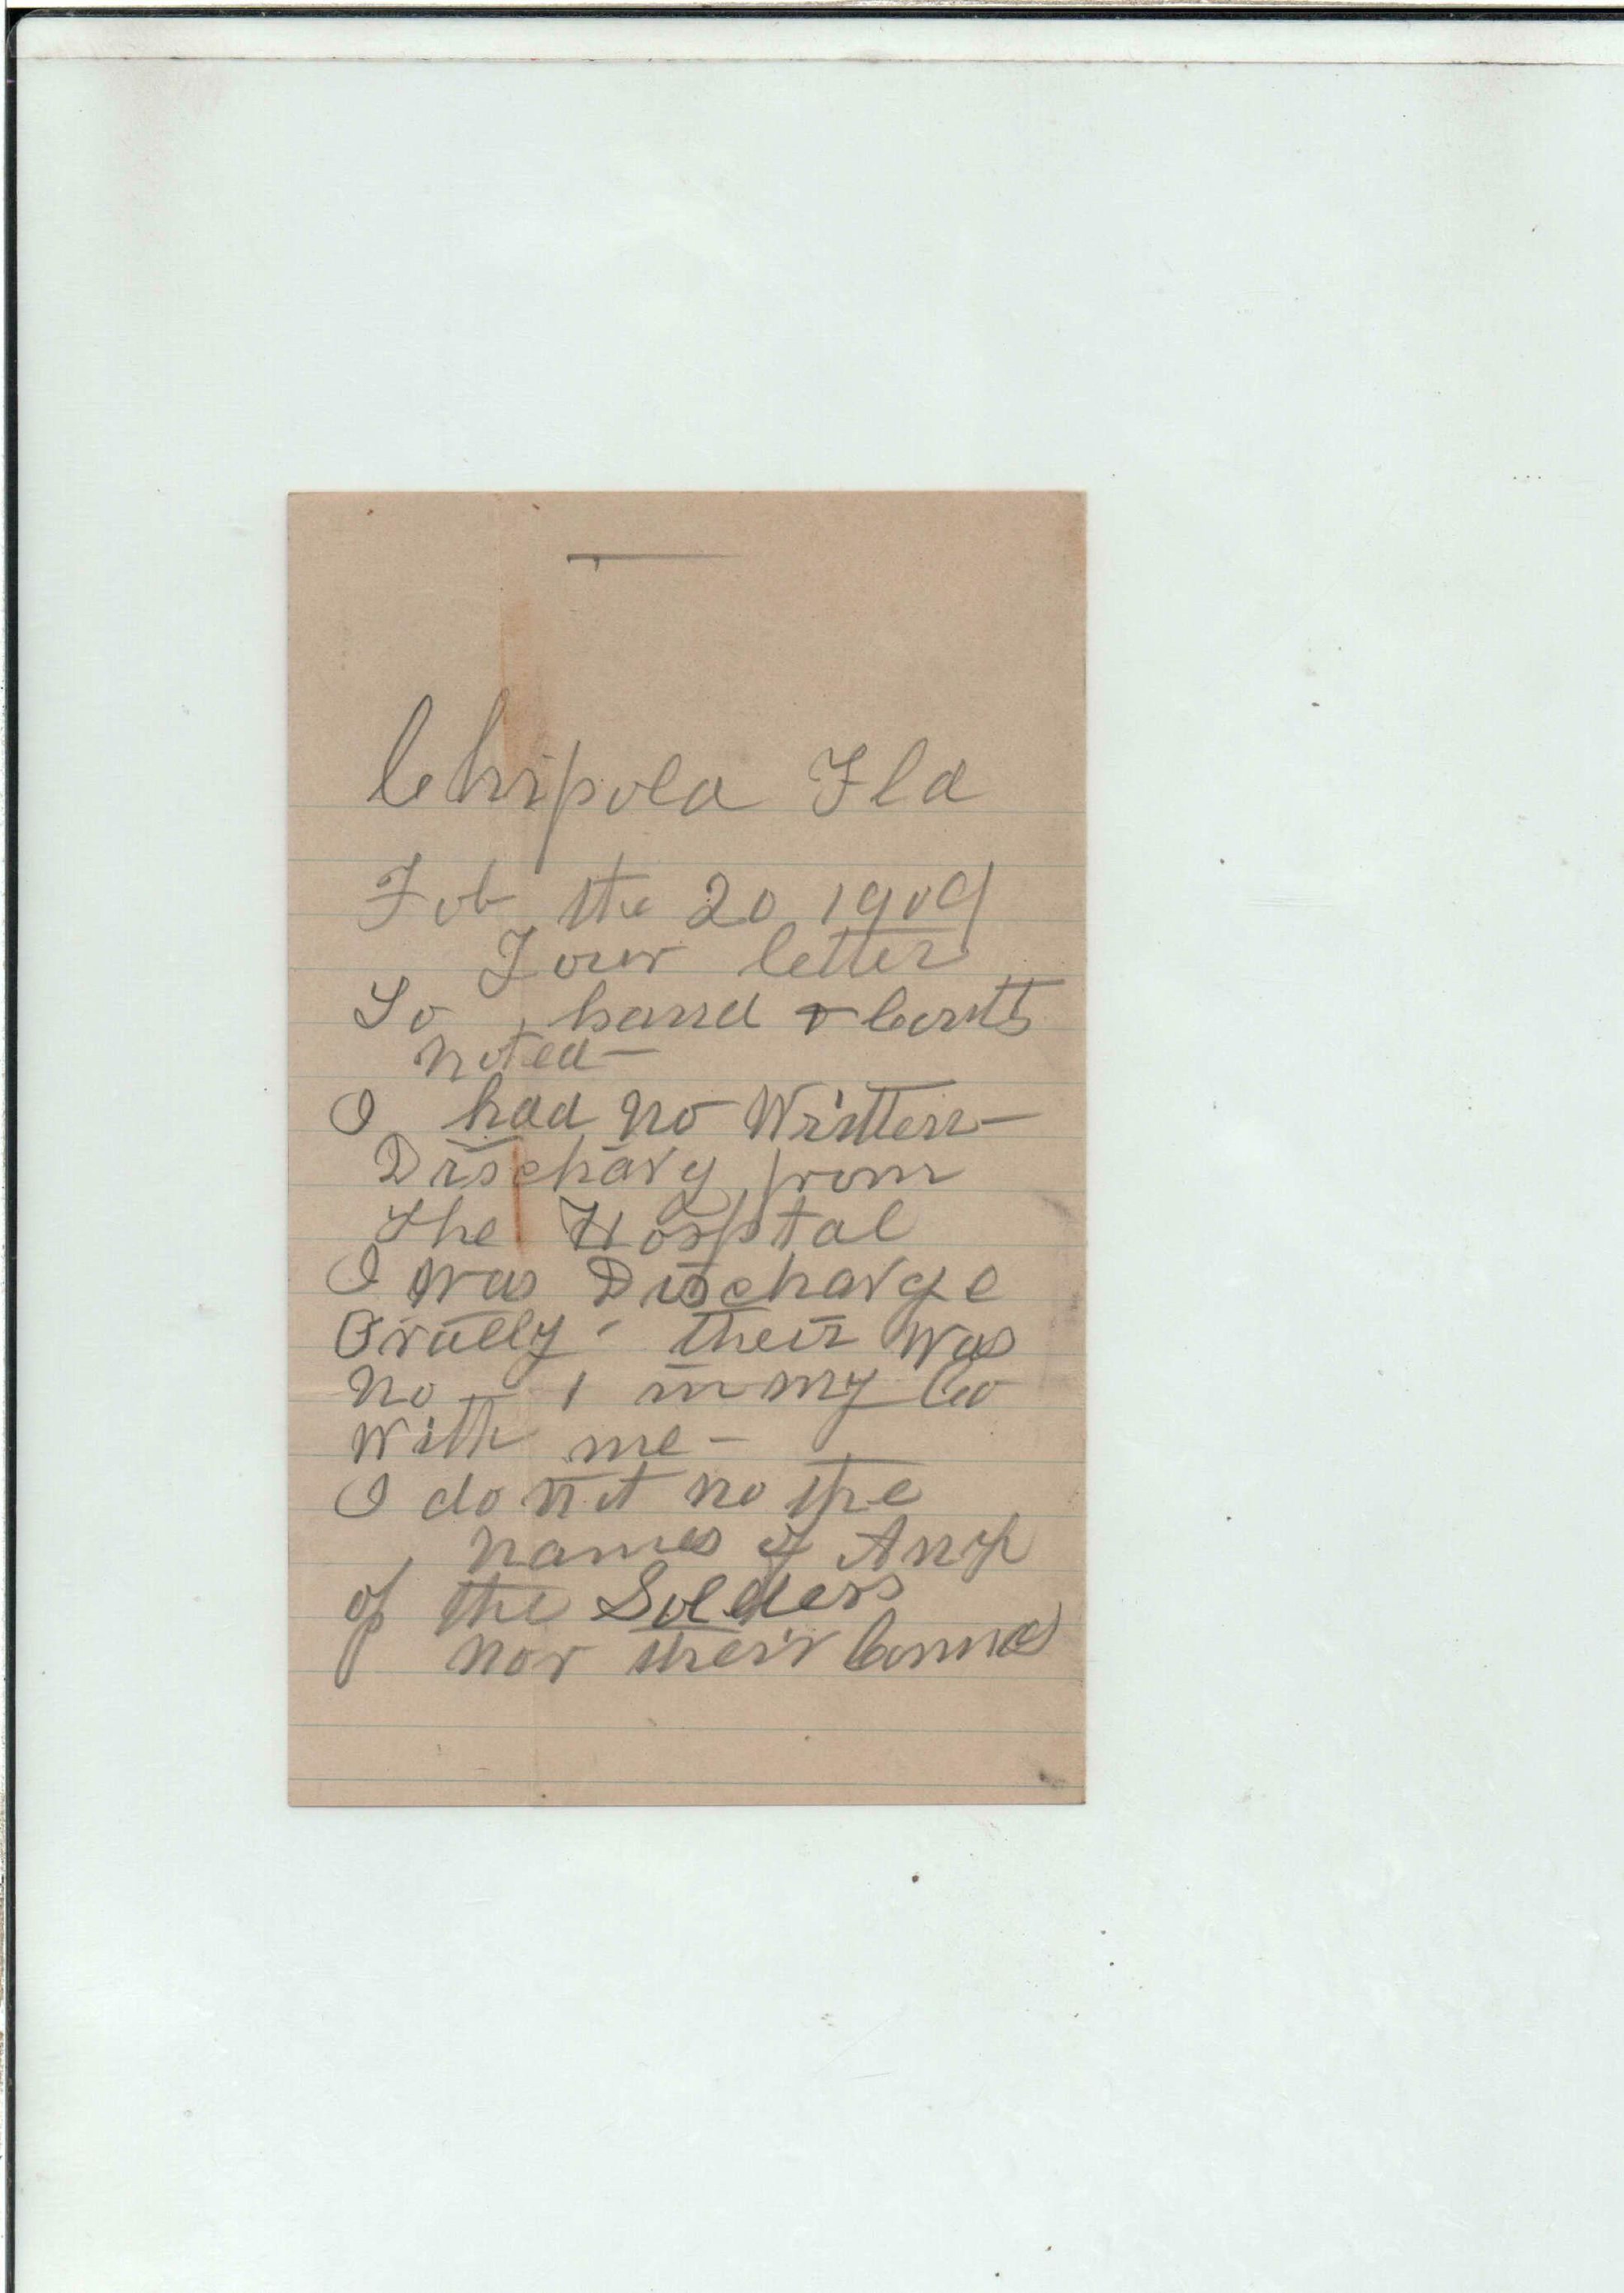 Chipola Fla
Feb the 20 1909
Your letter
To hand & Conts
noted—
I had no Written—
Discharg from
the Hosptal
I was Discharge
Orally - their was
no 1 in my Co
With me—
I do nit no the
names of Any
of the Solders
nor their Comd